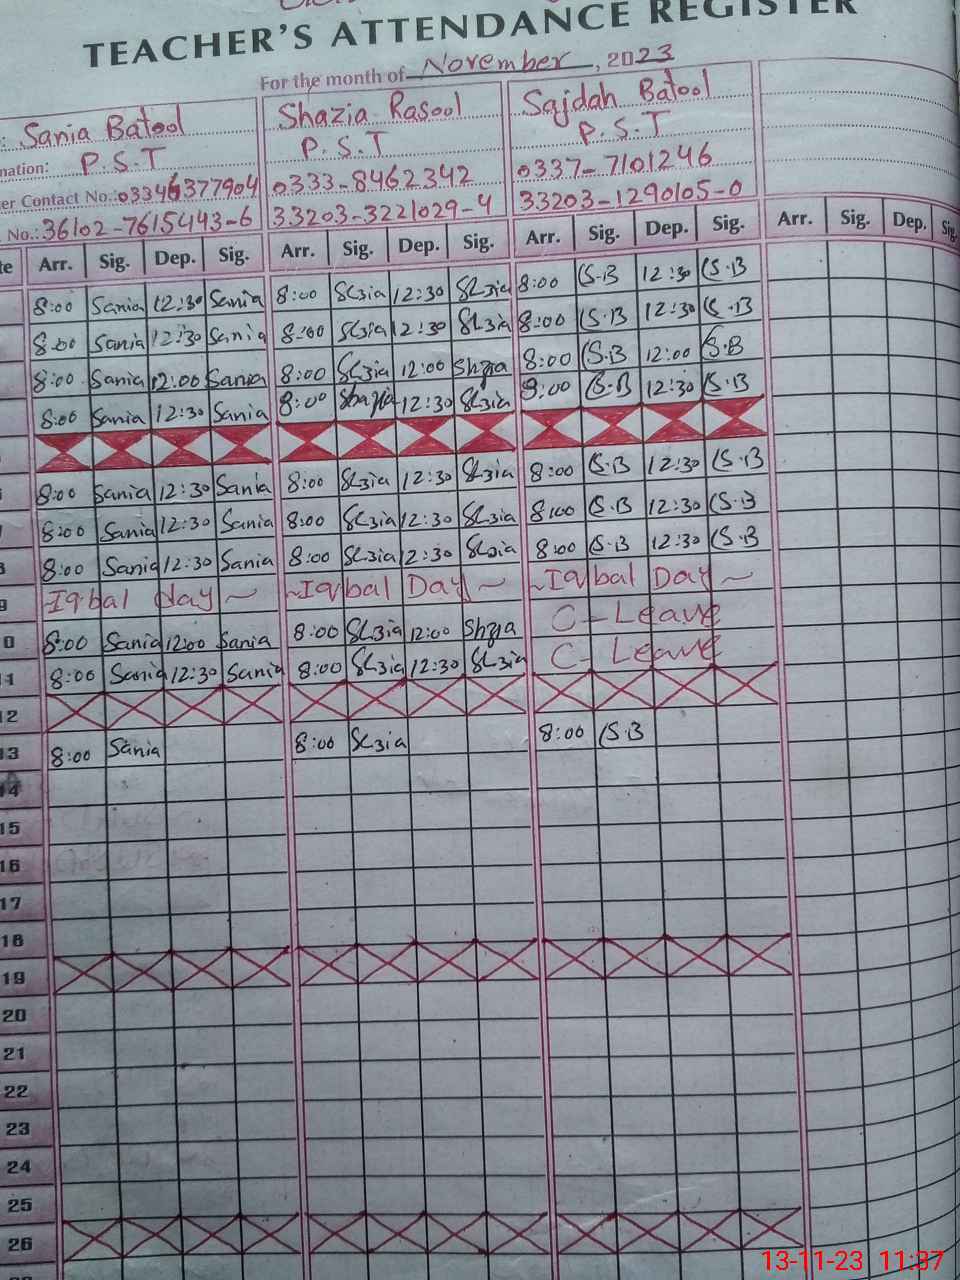 TEACHER'S ATTENDANCE REGISTER
For the month of November, 2023
: Sania Batool Shazia Rasool Sajdah Batool
nation: P.S.T P.S.T P.S.T
er Contact No.: 03346377904 0333-8462342 0337-7101246
No.: 36102-7615443-6 33203-3221029-4 33203-1290105-0
te Arr. Sig. Dep. Sig. Arr. Sig. Dep. Sig. Arr. Sig. Dep. Sig. Arr. Sig. Dep. Sig
8:00 Sania 12:30 Sania 8:00 Sh3ia 12:30 Sh3ia 8:00 S.B 12:30 S.B
8:00 Sania 12:30 Sania 8:00 Sh3ia 12:30 Sh3ia 8:00 S.B 12:30 S.B
8:00 Sania 12:00 Sania 8:00 Sh3ia 12:00 Shzia 8:00 S.B 12:00 S.B
8:00 Sania 12:30 Sania 8:00 Shazia 12:30 Sh3ia 8:00 S.B 12:30 S.B
8:00 Sania 12:30 Sania 8:00 Sh3ia 12:30 Sh3ia 8:00 S.B 12:30 S.B
7 8:00 Sania 12:30 Sania 8:00 Sh3ia 12:30 Sh3ia 8:00 S.B 12:30 S.B
8 8:00 Sania 12:30 Sania 8:00 Sh3ia 12:30 Sh3ia 8:00 S.B 12:30 S.B
9 Iqbal day ~ ~Iqbal Day ~ ~Iqbal Day ~
0 8:00 Sania 12:00 Sania 8:00 Sh3ia 12:00 Shzia C-Leave
11 8:00 Sania 12:30 Sania 8:00 Sh3ia 12:30 Sh3ia C-Leave
12
13 8:00 Sania 8:00 Sh3ia 8:00 S.B
14
15
16
17
18
19
20
21
22
23
24
25
26
13-11-23 11:37